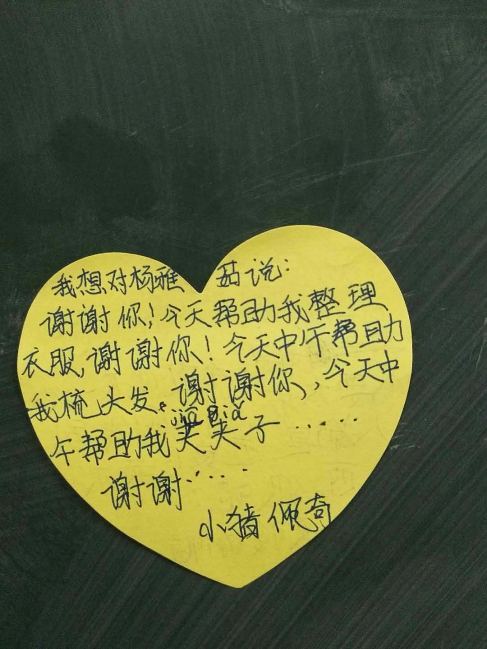 我想对杨雅茹说:
谢谢你!今天帮助我整理
衣服,谢谢你!今天中午帮助
我梳头发。谢谢你,,今天中
jiā jiá
午帮助我夹夹子……
谢谢……
小猪佩奇